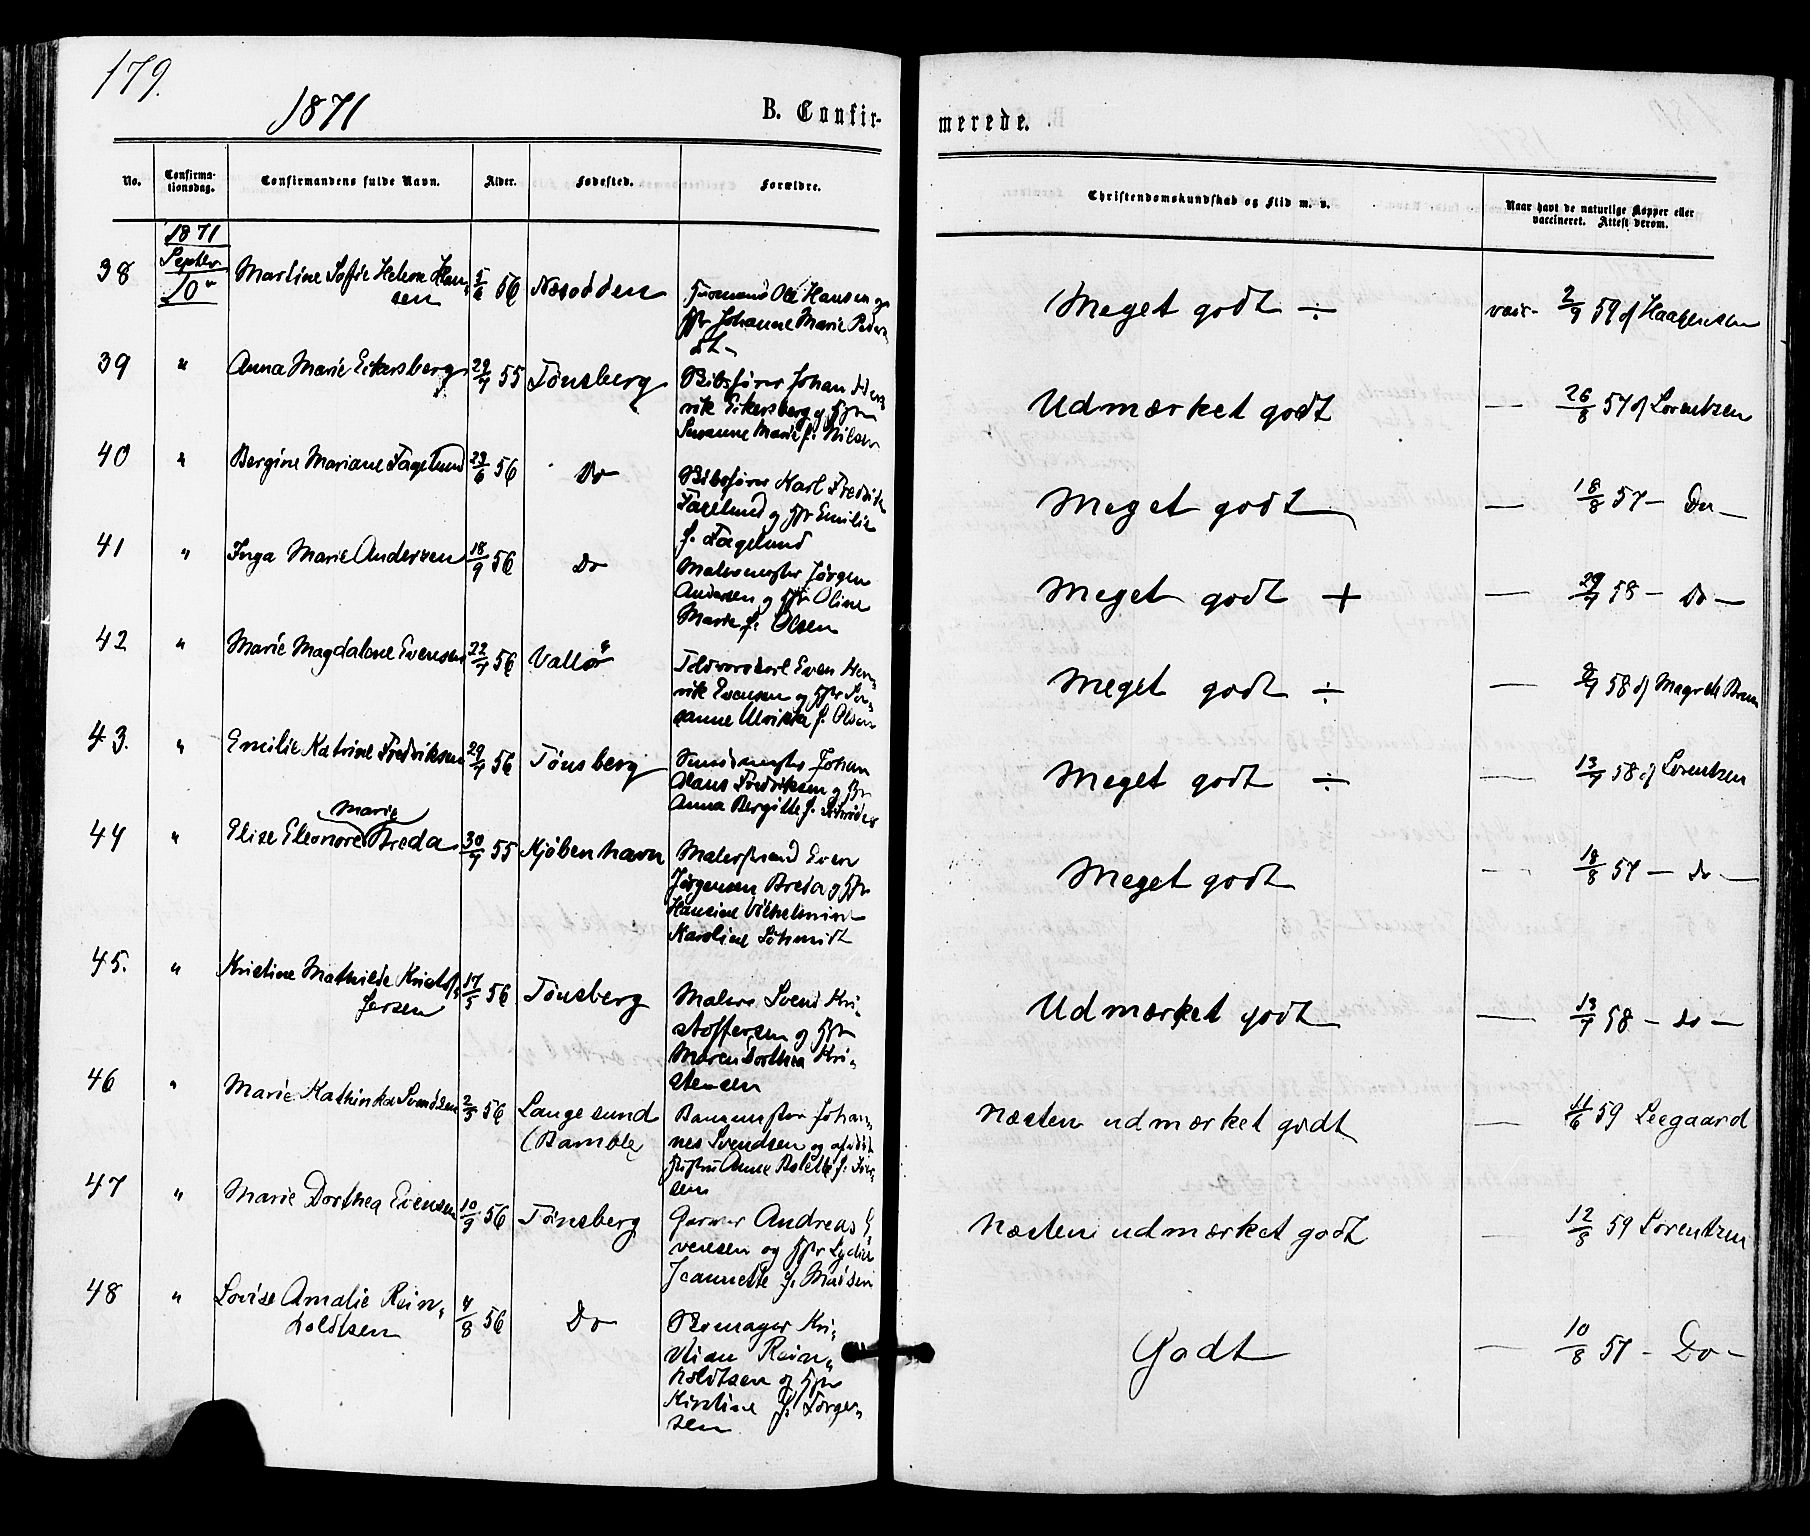 179.
1871
B. Confir-
merede.
No.
Confirma-
tionsdag.
Confirmandens fulde Navn.
Alder.
Fødested.
Forældre.
Christendomskundskab og Flid m. v.
Naar havt de naturlige Kopper eller
vaccineret. Attest derom.
1871
Septbr
10
38 Martine Sofie Helene Han-
sen
5/6 56 Næsodden
Ole Hansen og
Johanne Marie
Meget godt ÷
vacc. 2/9 59 af Haagensen
39 " Anna Marie Eckersberg 29/7 55 Tønsberg
Johan Hen-
rik Eckersberg og
Susanne Marie f. Nilsen
Udmærket godt
— 26/8 57 af Lorentzen
40 " Bergine Mariane Fagelund 23/6 56 Do
Karl Fredrik
Fagelund og Emilie
f. Fagelund
Meget godt
— 18/8 57 — Do —
41 " Inga Marie Andersen 18/9 56 Do
Malermester Jørgen
Andersen og Oline
Marie f. Olsen
Meget godt +
— 29/7 58 — Do —
42 " Marie Magdalene Evensen 22/7 56 Vallø
Even Hen-
rik Evensen og Su-
sanne Ulrikka f. Olsen
Meget godt ÷
— 58 af
43. " Emilie Katrine Fredriksen 29/7 56 Tønsberg
Johan
Hans Fredriksen og
Anna Bergitte f.
Meget godt ÷
— 13/7 58 af Lorentzen
Marie
44 " Elise Eleonore Breda 30/7 55 Kjøbenhavn
Malersvend Even
Jørgensen Breda og
Hansine Vilhelmine
Karoline Schmidt
Meget godt
— 18/8 57 — Do —
45. " Kristine Mathilde Kristof-
fersen
17/5 56 Tønsberg
Maler Svend Kri-
stoffersen og
Maren Dorthea Kri-
stensen
Udmærket godt
— 13/7 58 — Do —
46 " Marie Kathinka Svendsen 2/3 56 Langesund
(Bamble)
Johan-
nes Svendsen og afdøde
Hustru Anne f. Iver-
sen
Næsten udmærket godt
— 11/6 59 Leegaard
47 " Marie Dorthea Evensen 10/9 56 Tønsberg
Garver Andreas E-
vensen og Lydia
Jeannette f. Madsen
Næsten udmærket godt
— 12/8 59 Lorentzen
48 " Lovise Amalie Rein-
holdtsen
4/8 56 Do
Kri-
stian Rein-
holdtsen og
Kirstine f. Torger-
sen
Godt
— 10/8 57 — Do —